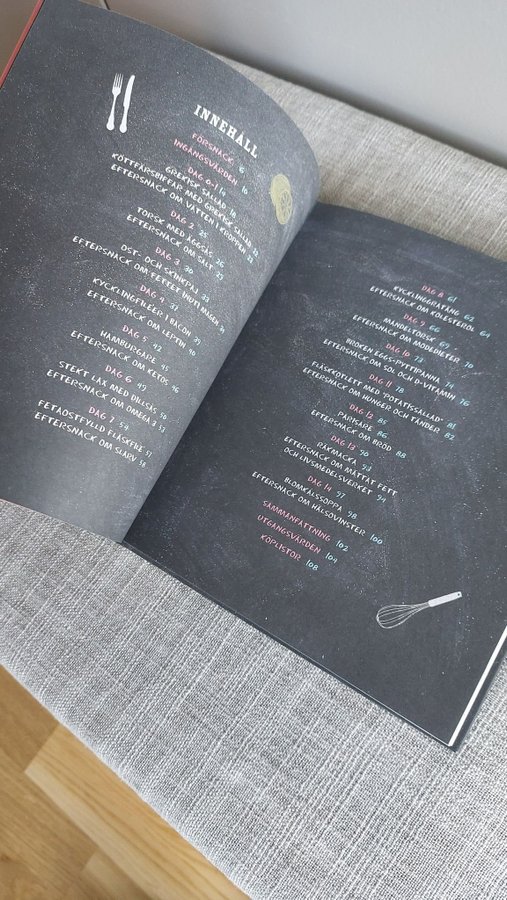 INNEHÅLL
FÖRSNACK 6
INGÅNGSVÄRDEN 10
DAG 0-1 14
GREKISK SALLAD 18
KÖTTFÄRSBIFFAR MED GREKISK SALLAD 22
EFTERSNACK OM VATTEN I KROPPEN 23
DAG 2 25
TORSK MED ÄGGSÅS 26
EFTERSNACK OM SALT 27
DAG 3 30
OST- OCH SKINKPAJ 33
EFTERSNACK OM FETTET INUTI MAGEN 34
DAG 4 37
KYCKLINGFILÉER I BACON 39
EFTERSNACK OM LEPTIN 40
DAG 5 42
HAMBURGARE 45
EFTERSNACK OM KETOS 46
DAG 6 49
STEKT LAX MED DILLSÅS 50
EFTERSNACK OM OMEGA 3 52
DAG 7 54
FETAOSTFYLLD FLÄSKFILÉ 57
EFTERSNACK OM SLARV 58
DAG 8 61
KYCKLINGGRATÄNG 62
EFTERSNACK OM KOLESTEROL 64
DAG 9 66
MANDELTORSK 69
EFTERSNACK OM MODEDIETER 70
DAG 10 72
BROKEN EGGS-PYTTIPANNA 74
EFTERSNACK OM SOL OCH D-VITAMIN 76
DAG 11 78
FLÄSKKOTLETT MED "POTATISSALLAD" 81
EFTERSNACK OM HUNGER OCH TÄNDER 82
DAG 12 85
PARISARE 86
EFTERSNACK OM BRÖD 88
DAG 13 90
RÄKMACKA 93
EFTERSNACK OM MÄTTAT FETT
OCH LIVSMEDELSVERKET 94
DAG 14 97
BLOMKÅLSSOPPA 98
EFTERSNACK OM HÄLSOVINSTER 100
SAMMANFATTNING 102
UTGÅNGSVÄRDEN 104
KÖPLISTOR 108